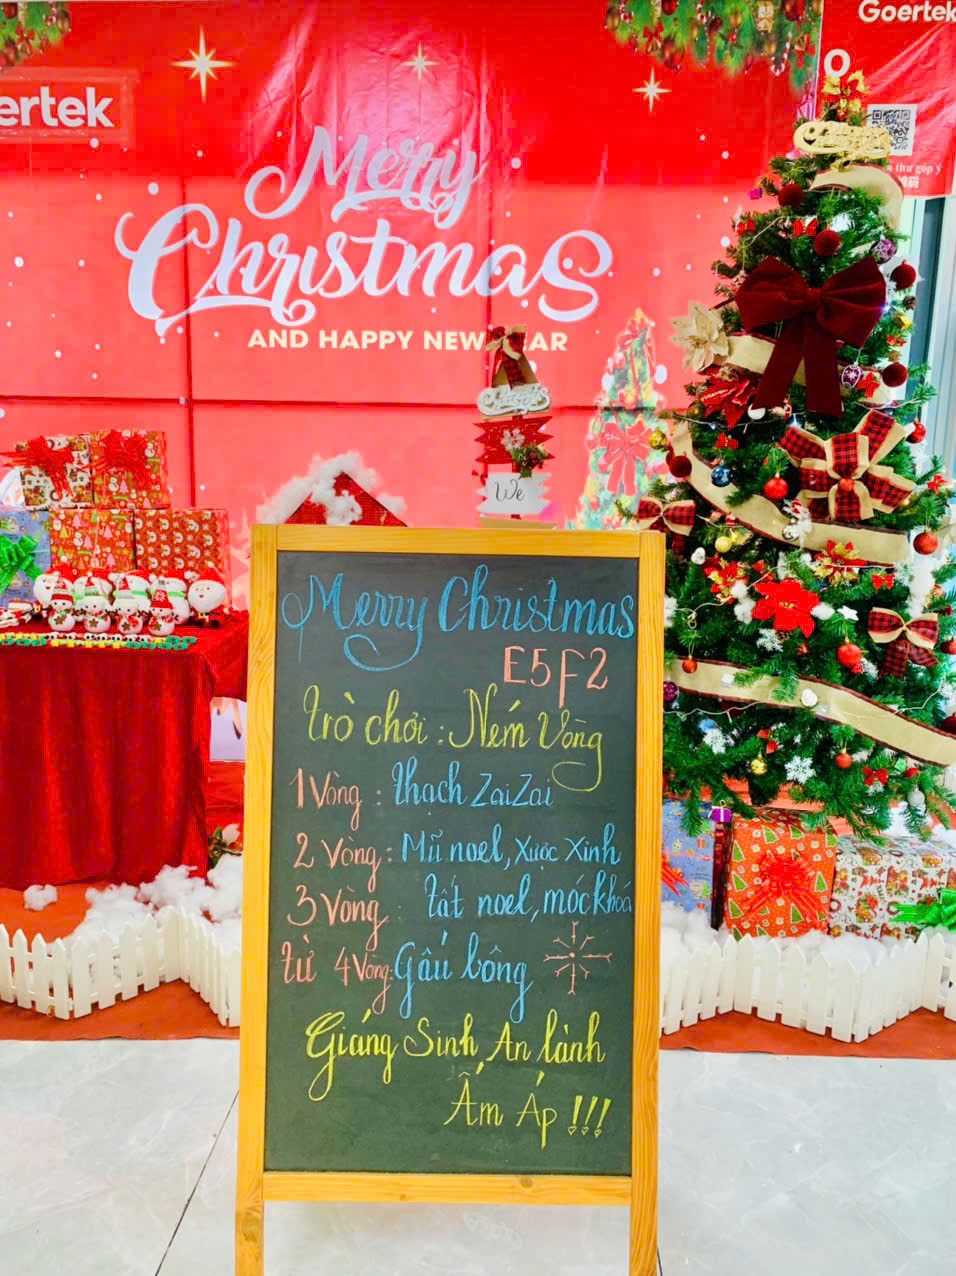 Goertek
ertek
Merry
Christmas
AND HAPPY NEW EAR
thư góp ý
We
Merry Christmas
E5F2
Trò chơi : Ném Vòng
1 Vòng : Thạch ZaiZai
2 Vòng : Mũ noel, Xược Xinh
3 Vòng : Tất noel, móc khóa
từ 4 Vòng: Gấu bông
Giáng Sinh An lành
Ấm Áp !!!